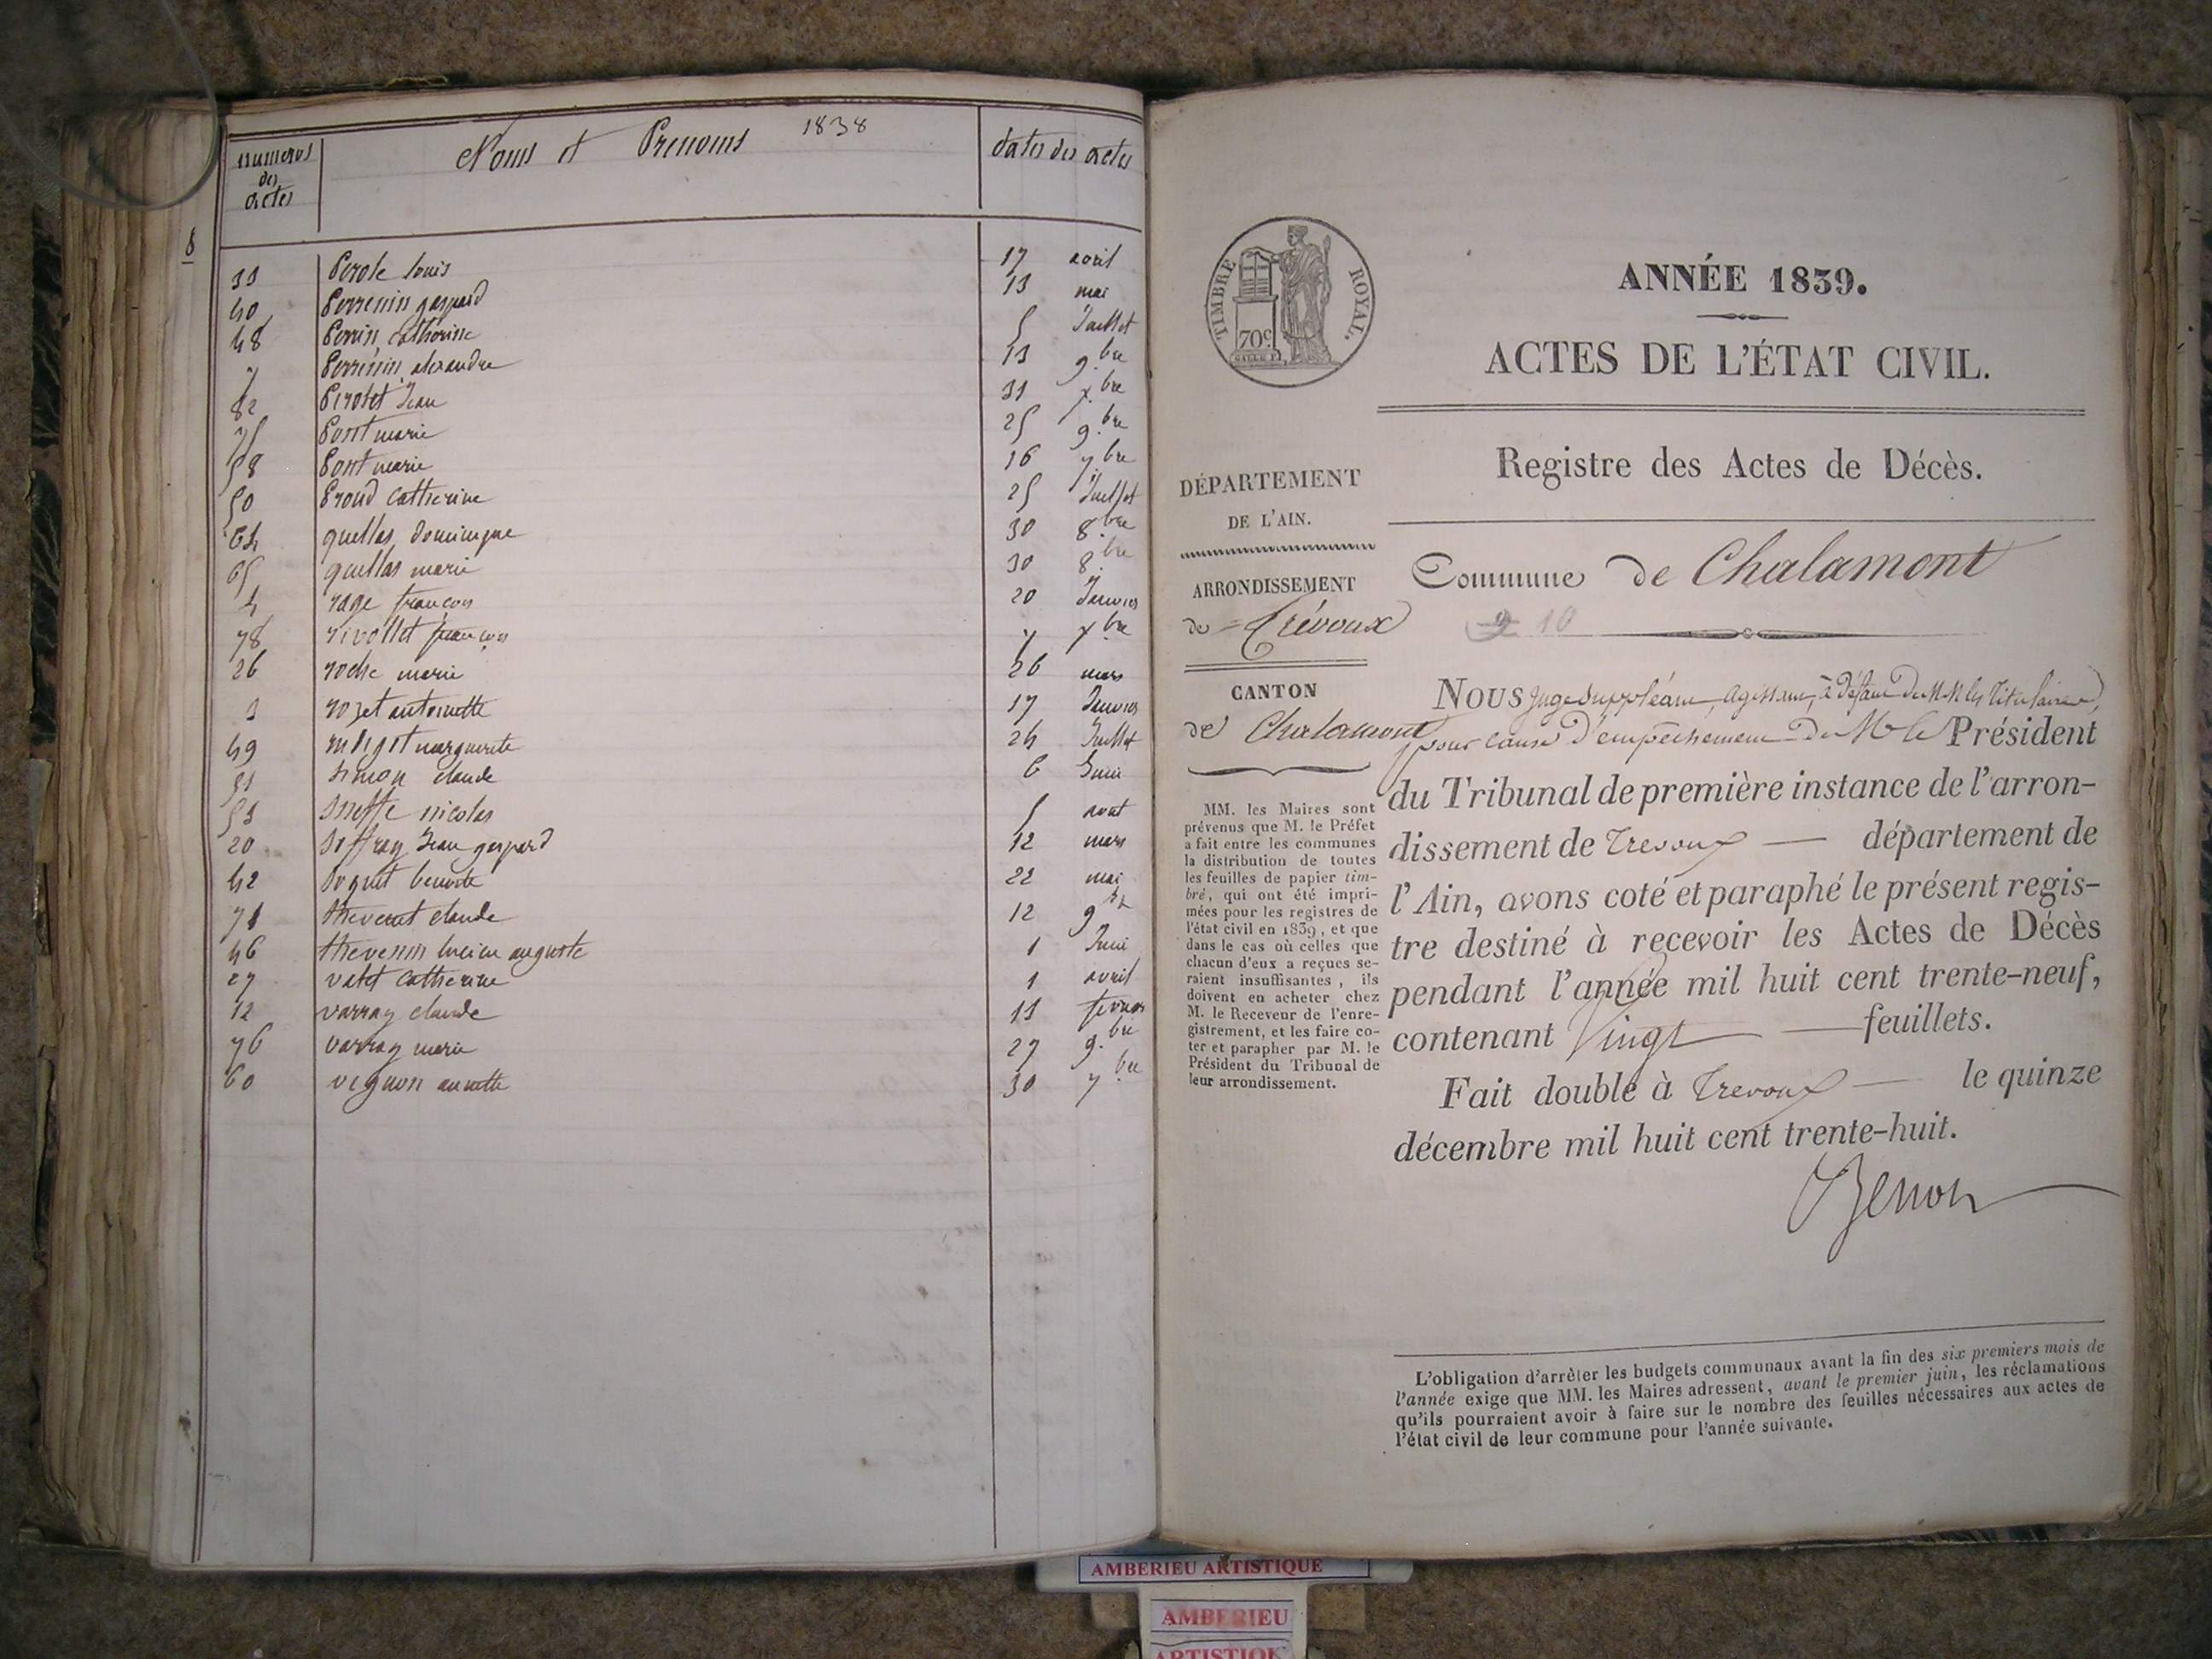 numeros des actes
Noms et Prenoms 1838
dates des actes
8
33 Perole louis 17 avril
40 Perrenin gaspard 13 mai
48 Perrin catherine 5 Juillet
Perrenin alexandre 13 9.bre
82 Pirotet Jean 31 x.bre
75 Pont marie 25 9.bre
58 Pont marie 16 7.bre
50 Proud Catherine 25 Juillet
64 quellas dominique 30 8.bre
65 quellas marie 30 8.bre
4 rage françois 20 Janvier
78 rivollet françois 7 x.bre
26 roche marie 26 mars
3 rozet antoinette 17 Janvier
49 marguerite 24 Juillet
51 Simon claude 6
53 nicolas 5 aout
20 Jean gaspard 12 mars
42 benoite 22 mai
71 thevenet claude 12 9.bre
46 thevenin lucien auguste 1 Juin
27 vatet Catherine 1 avril
12 varray claude 11 fevrier
76 varray marie 27 9.bre
60 vignon annette 30 7.bre
TIMBRE ROYAL.
70c
ANNÉE 1839.
ACTES DE L'ÉTAT CIVIL.
Registre des Actes de Décès.
DÉPARTEMENT
DE L'AIN.
ARRONDISSEMENT
de Trévoux
CANTON
de Chalamont
Commune de Chalamont
10
MM. les Maires sont
prévenus que M. le Préfet
a fait entre les communes
la distribution de toutes
les feuilles de papier tim-
bré, qui ont été impri-
mées pour les registres de
l'état civil en 1839, et que
dans le cas où celles que
chacun d'eux a reçues se-
raient insuffisantes, ils
doivent en acheter chez
M. le Receveur de l'enre-
gistrement, et les faire co-
ter et parapher par M. le
Président du Tribunal de
leur arrondissement.
NOUS juge Suppléant, agissant, à défaut de MM les Titulaires,
pour cause d'empêchement de Mr le Président
du Tribunal de première instance de l'arron-
dissement de Trevoux — département de
l'Ain, avons coté et paraphé le présent regis-
tre destiné à recevoir les Actes de Décès
pendant l'année mil huit cent trente-neuf,
contenant Vingt — feuillets.
Fait double à Trevoux — le quinze
décembre mil huit cent trente-huit.
L'obligation d'arrêter les budgets communaux avant la fin des six premiers mois de
l'année exige que MM. les Maires adressent, avant le premier juin, les réclamations
qu'ils pourraient avoir à faire sur le nombre des feuilles nécessaires aux actes de
l'état civil de leur commune pour l'année suivante.
AMBERIEU ARTISTIQUE
AMBERIEU